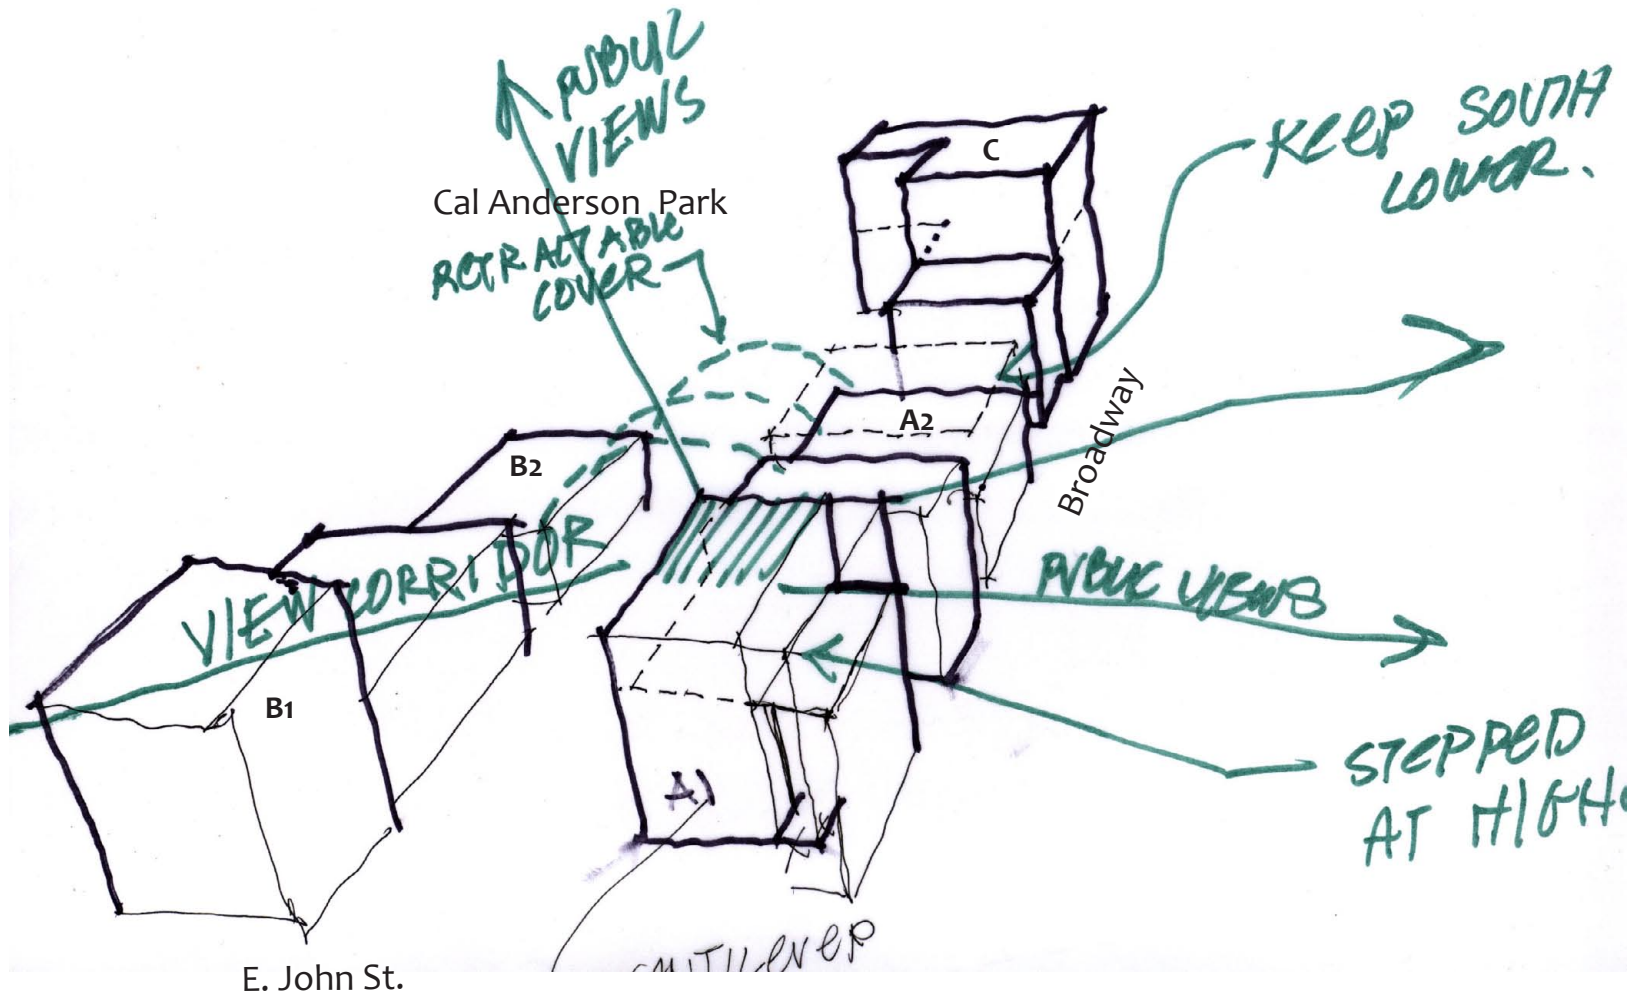 PUBLIC
VIEWS
KEEP SOUTH
LOWER.
C
Cal Anderson Park
RETRACTABLE
COVER
A2
Broadway
B2
VIEW CORRIDOR
PUBLIC VIEWS
B1
STEPPED
AT
A1
E. John St.